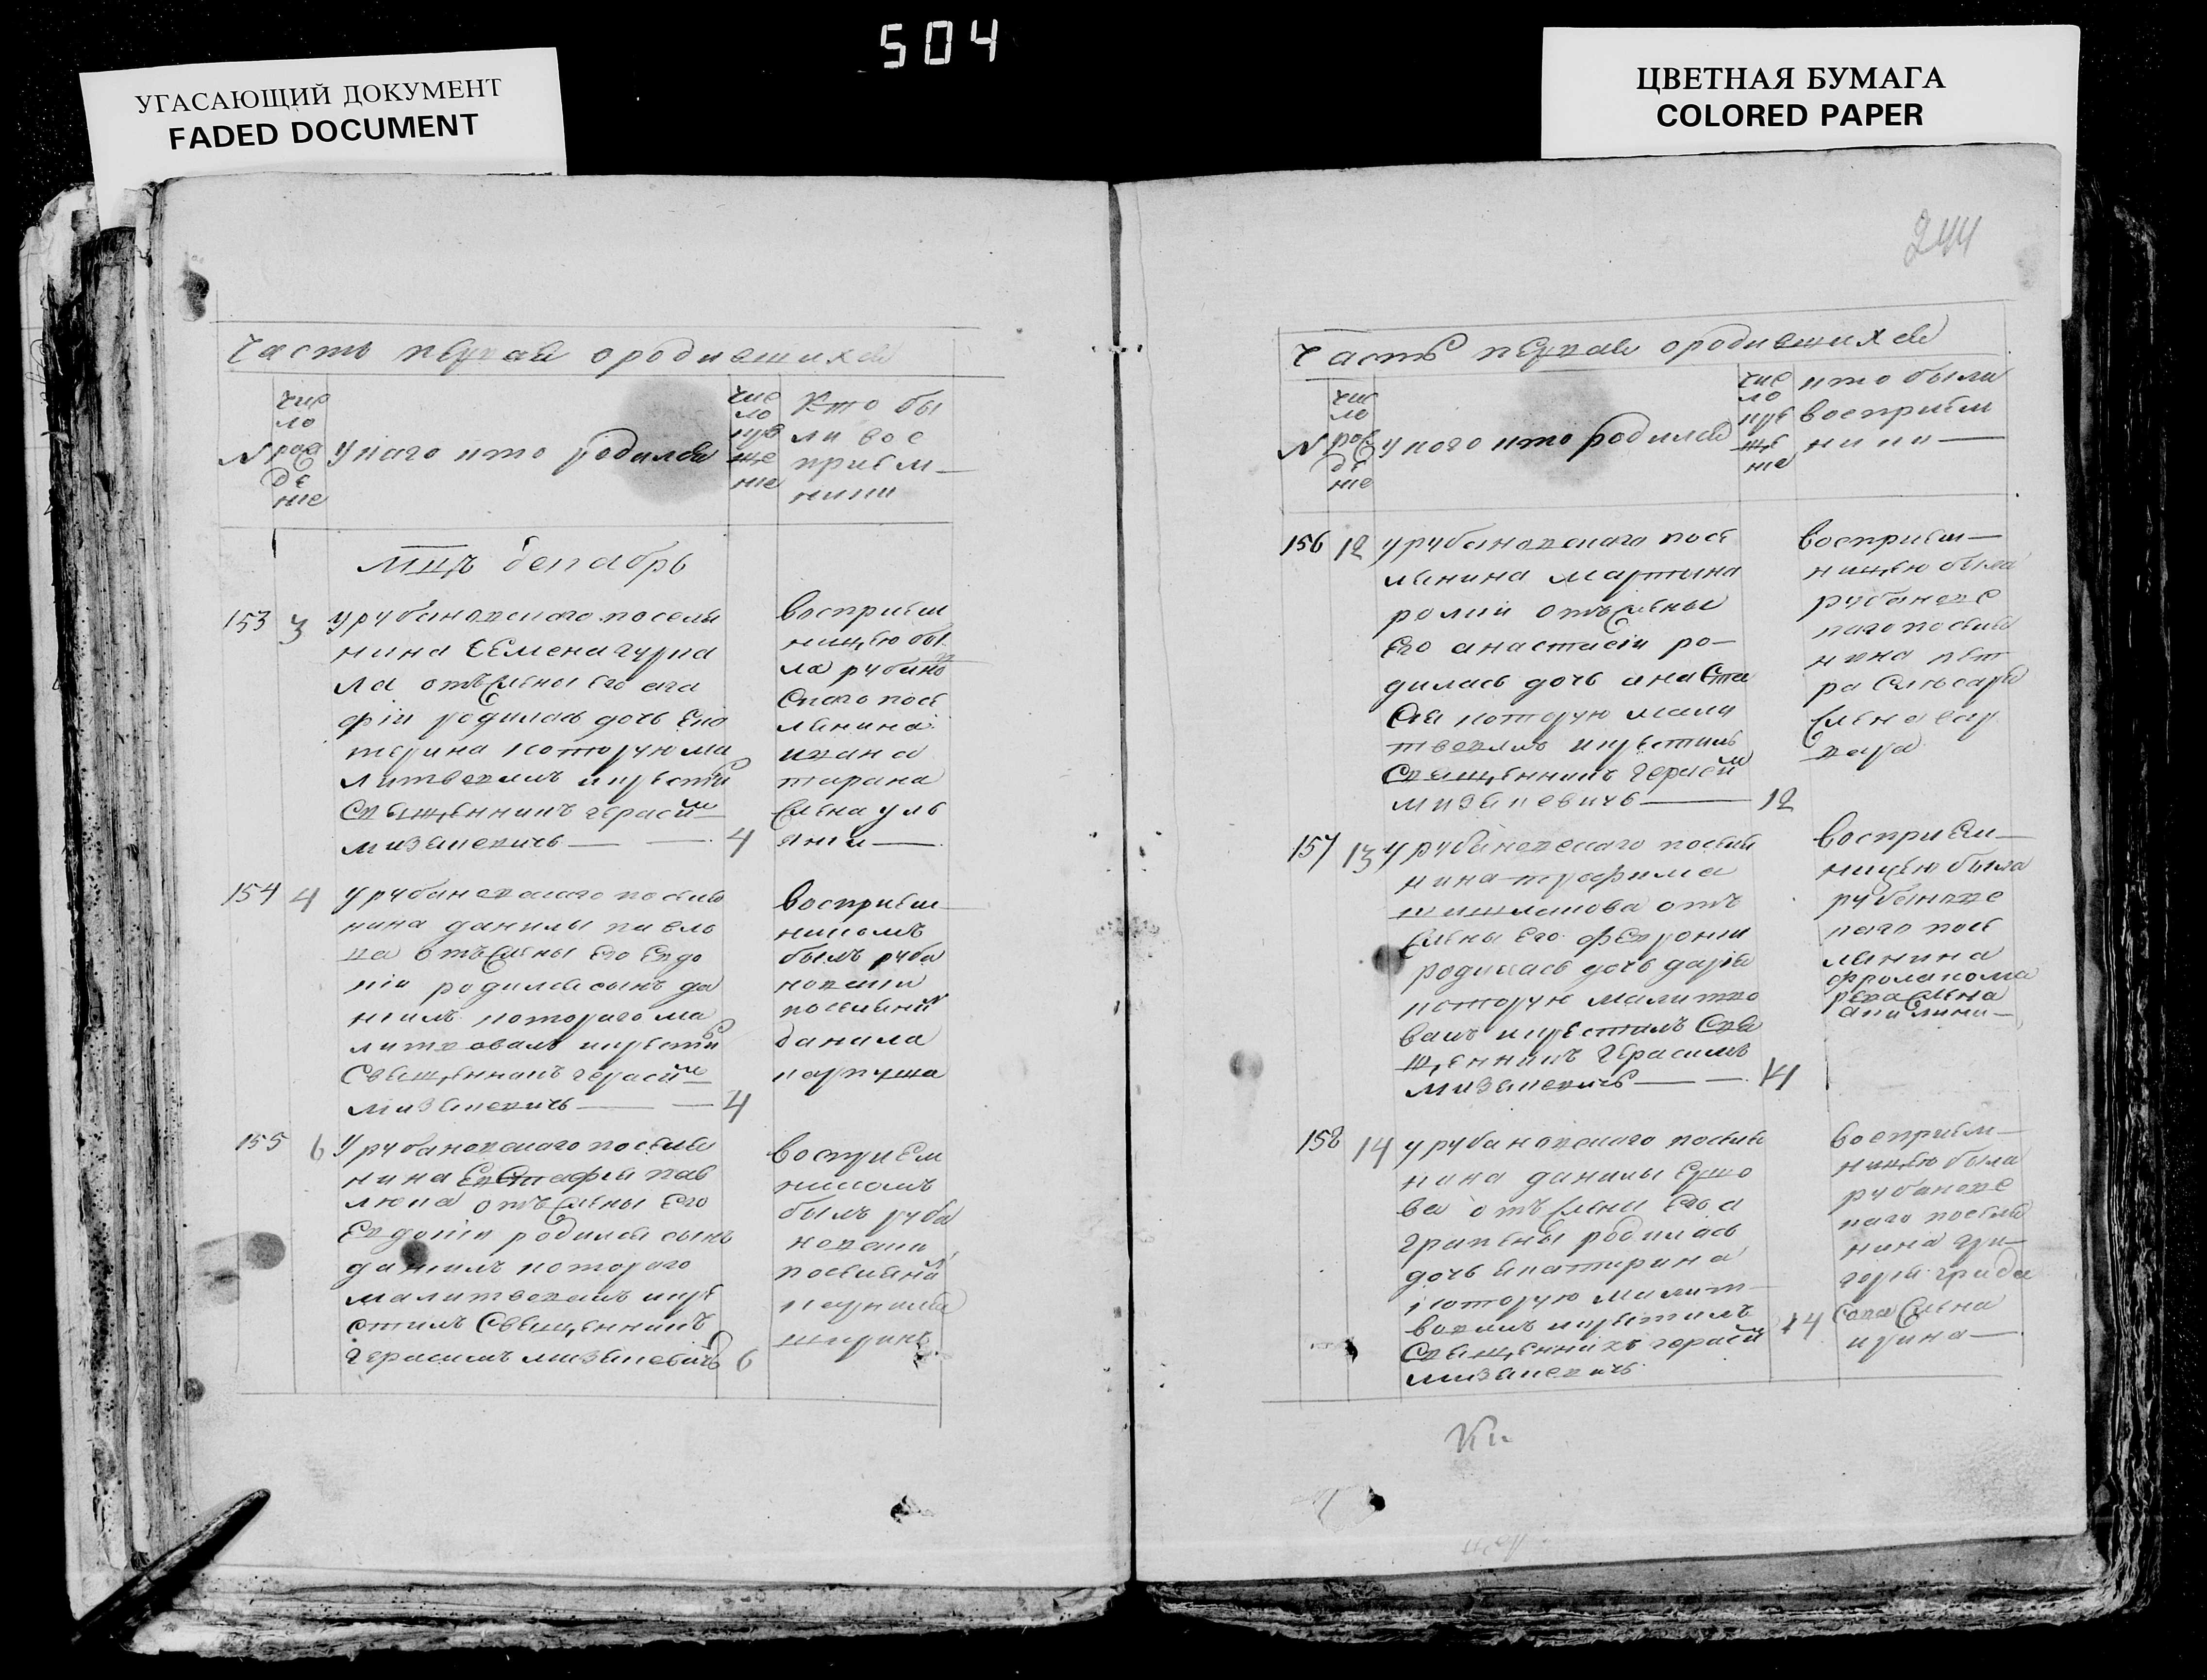 504
УГАСАЮЩИЙ ДОКУМЕНТ
FADED DOCUMENT
ЦВЕТНАЯ БУМАГА
COLORED PAPER
244
Часть первая ородившихся
N
чис
ло
рож
де
ние
У каго кто родился
чис
ло
кре
ще
ние
Кто бы
ли вос
прием—
ники
мцъ декабрь
153
3
У рубановскаго поселя
нина Семена
ла отъ жены его ага
фіи родилась дочь Ека
терина которую ма
литвовалъ и крести
Священникъ герасим
мизякевичъ
4
восприем
ницею бы
ла рубанов
скаго посе
лянина
ивана
тарана
жена уль
яни
154
4
У рубановскаго поселя
нина данилы павло
ва отъ жены его евдо
кіи родился сынъ да
ніилъ котораго ма
литвовалъ и крести
Священникъ герасим
мизякевичъ
4
восприем
никомъ
былъ руба
новски
поселянин
данила
155
6
У рубановскаго поселя
нина Евстафия пав
люка отъ жены его
Евдокіи родился сынъ
даніилъ котораго
малитвовалъ и кре
стилъ Священникъ
герасимъ мизякевичъ
6
восприем
никомъ
былъ руба
новски
поселянин
Часть первая ородившихся
N
чис
ло
рож
де
ние
у кого кто родился
чис
ло
кре
ще
ние
кто были
восприем
ники
156
12
у рубановскаго посе
лянина мартина
отъ жены
его анастасіи ро-
дилась дочь анаста
сия которую мали
твовалъ и крестилъ
Священникъ герасим
мизякевичъ
12
восприем
ницею была
рубановс
каго поселя
нина пет
ра
жена вар
вара
157
13
у рубановскаго поселя
нина трофима
отъ
жены его февронии
родилась дочь дарія
которую малитво
валъ и крестилъ Свя
щенникъ герасимъ
мизякевичъ
14
восприем
ницею была
рубановс
каго посе
лянина
фрола
жена
158
14
у рубановскаго поселя
нина данилы
отъ жены его а
грипены родилась
дочь екатирина
которую малит
вовалъ и крестилъ
Священникъ герасим
мизякевичъ
14
восприем
ницею была
рубановс
каго поселя
нина гри
гория
жена
ирина